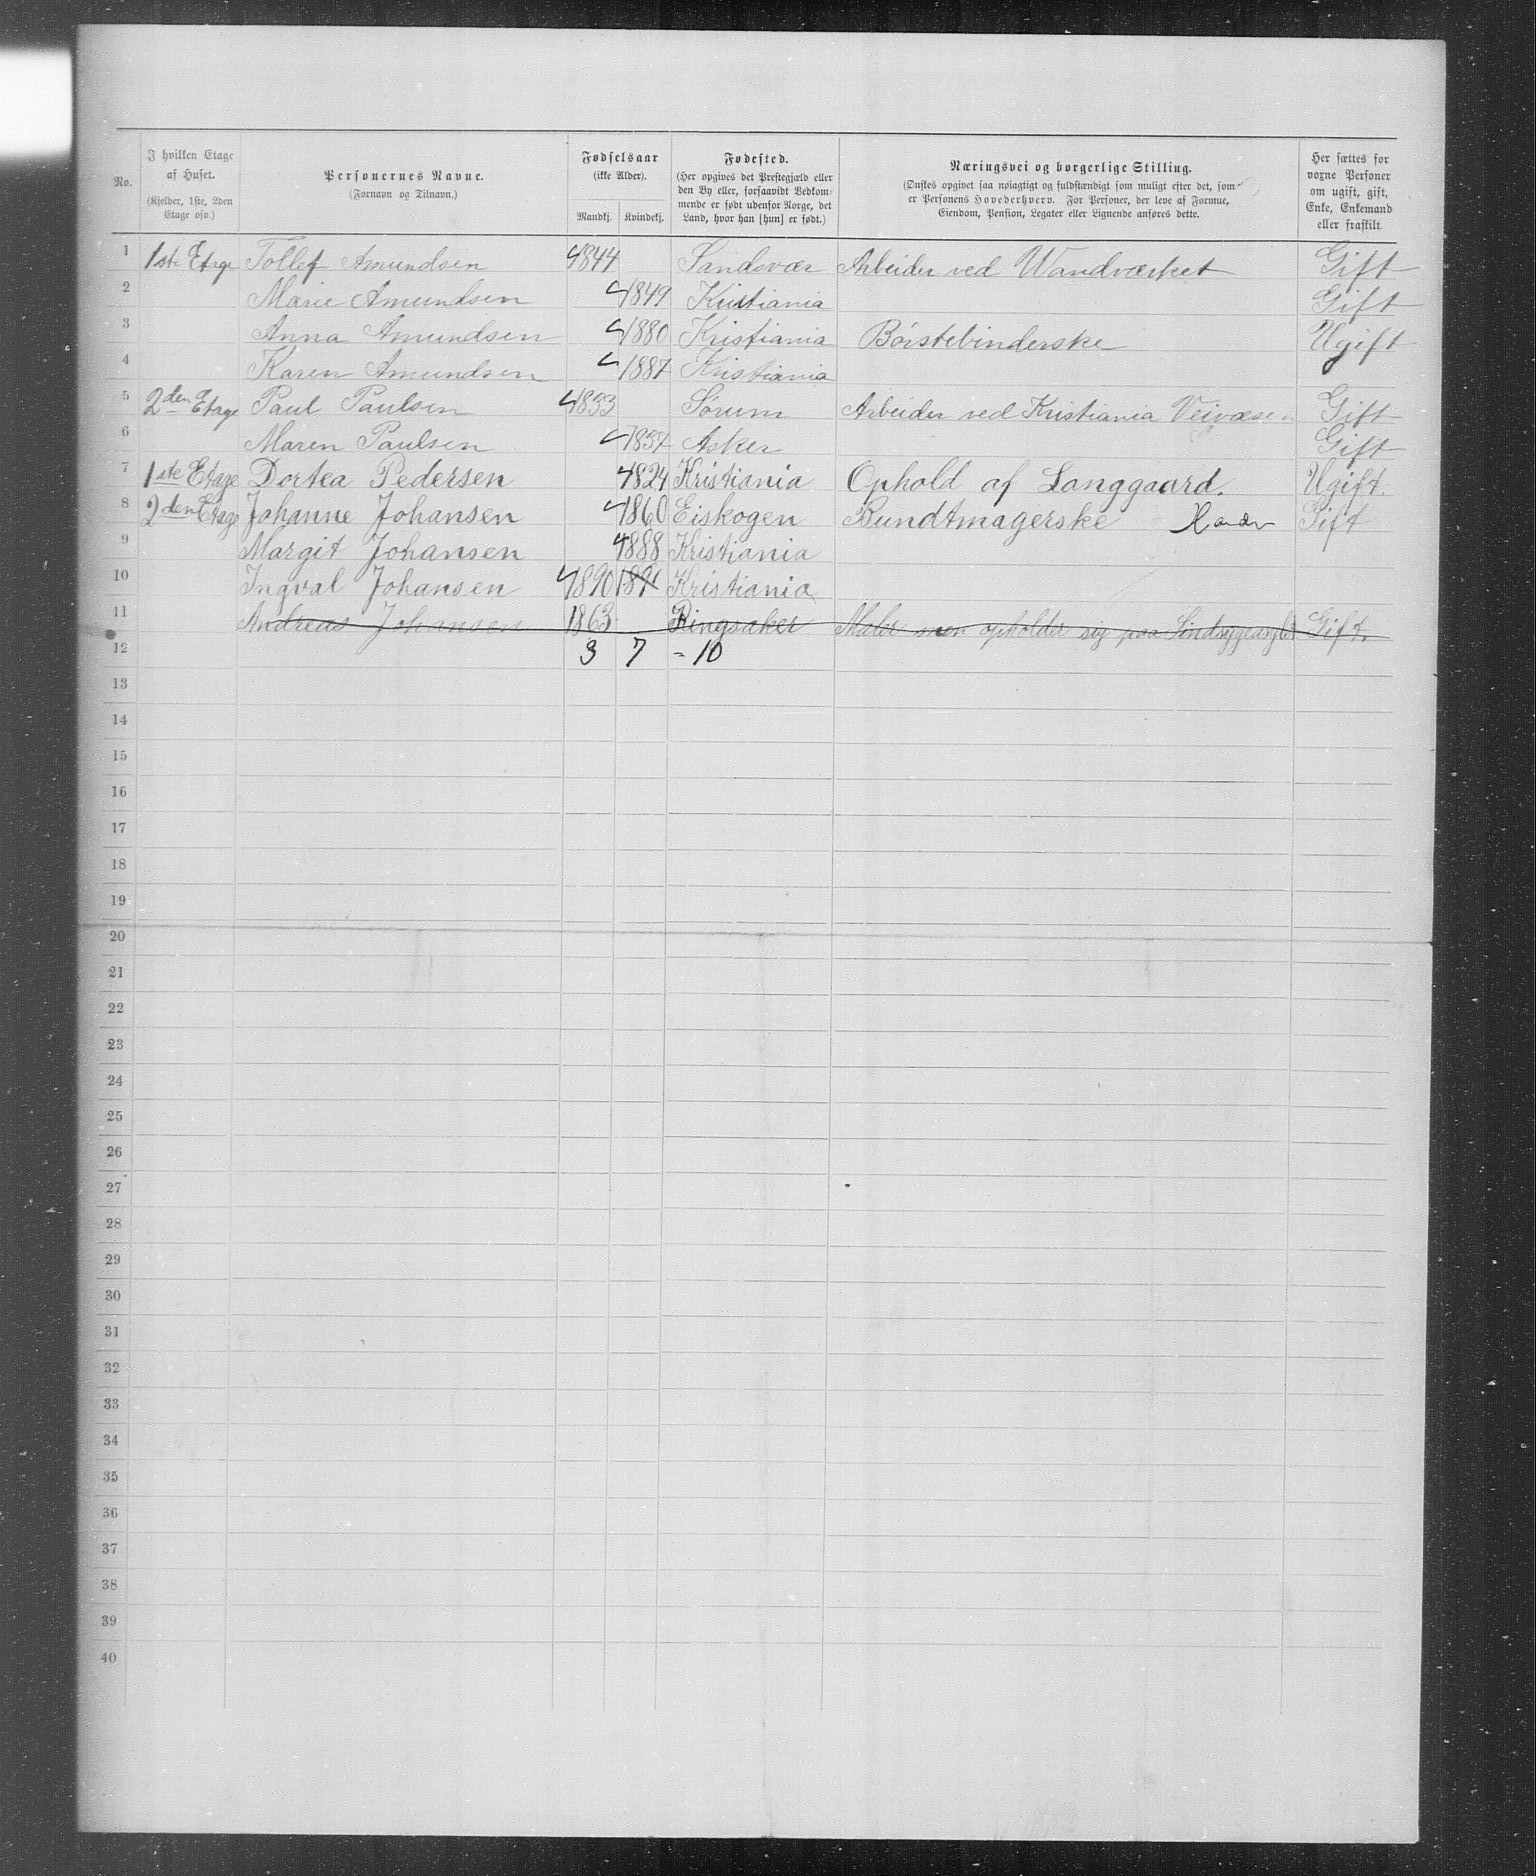 No.
I hvilken Etage af Huset.
(Kjelder, 1ste, 2den Etage osv.)
Personernes Navne.
(Fornavn og Tilnavn.)
Fødselsaar
(ikke Alder).
Mandkj. Kvindekj.
Fødested.
(Her opgives det Prestegjæld eller
den By eller, forsaavidt Vedkom-
mende er født udenfor Norge, det
Land, hvor han [hun] er født.)
Næringsvei og borgerlige Stilling.
(Ønskes opgivet saa nøiagtigt og fuldstændigt som muligt efter det, som
er Personens Hovederhverv. For Personer, der leve af Formue,
Eiendom, Pension, Legater eller Lignende anføres dette.
Her sættes for
voxne Personer
om ugift, gift,
Enke, Enkemand
eller fraskilt.
1 1ste Etage Tollef Amundsen 1844 Sandsvær Arbeider ved Wandværket Gift
2 Marie Amundsen 1849 Kristiania Gift
3 Anna Amundsen 1880 Kristiania Børstebinderske Ugift
4 Karen Amundsen 1887 Kristiania
5 2den Etage Paul Paulsen 1833 Sørum Arbeider ved Kristiania Veivæsen Gift
6 Maren Paulsen 1837 Asker Gift
7 1ste Etage Dortea Pedersen 1824 Kristiania Ophold af Langgaard. Ugift.
8 2den Etage Johanne Johansen 1860 Eiskogen Bundtmagerske Gift
9 Margit Johansen 1888 Kristiania
10 Ingval Johansen 1890 1891 Kristiania
11 Andreas Johansen 1863 Ringsaker Maler men opholder sig paa Sindsygeasylet Gift.
12 3 7 = 10
13
14
15
16
17
18
19
20
21
22
23
24
25
26
27
28
29
30
31
32
33
34
35
36
37
38
39
40